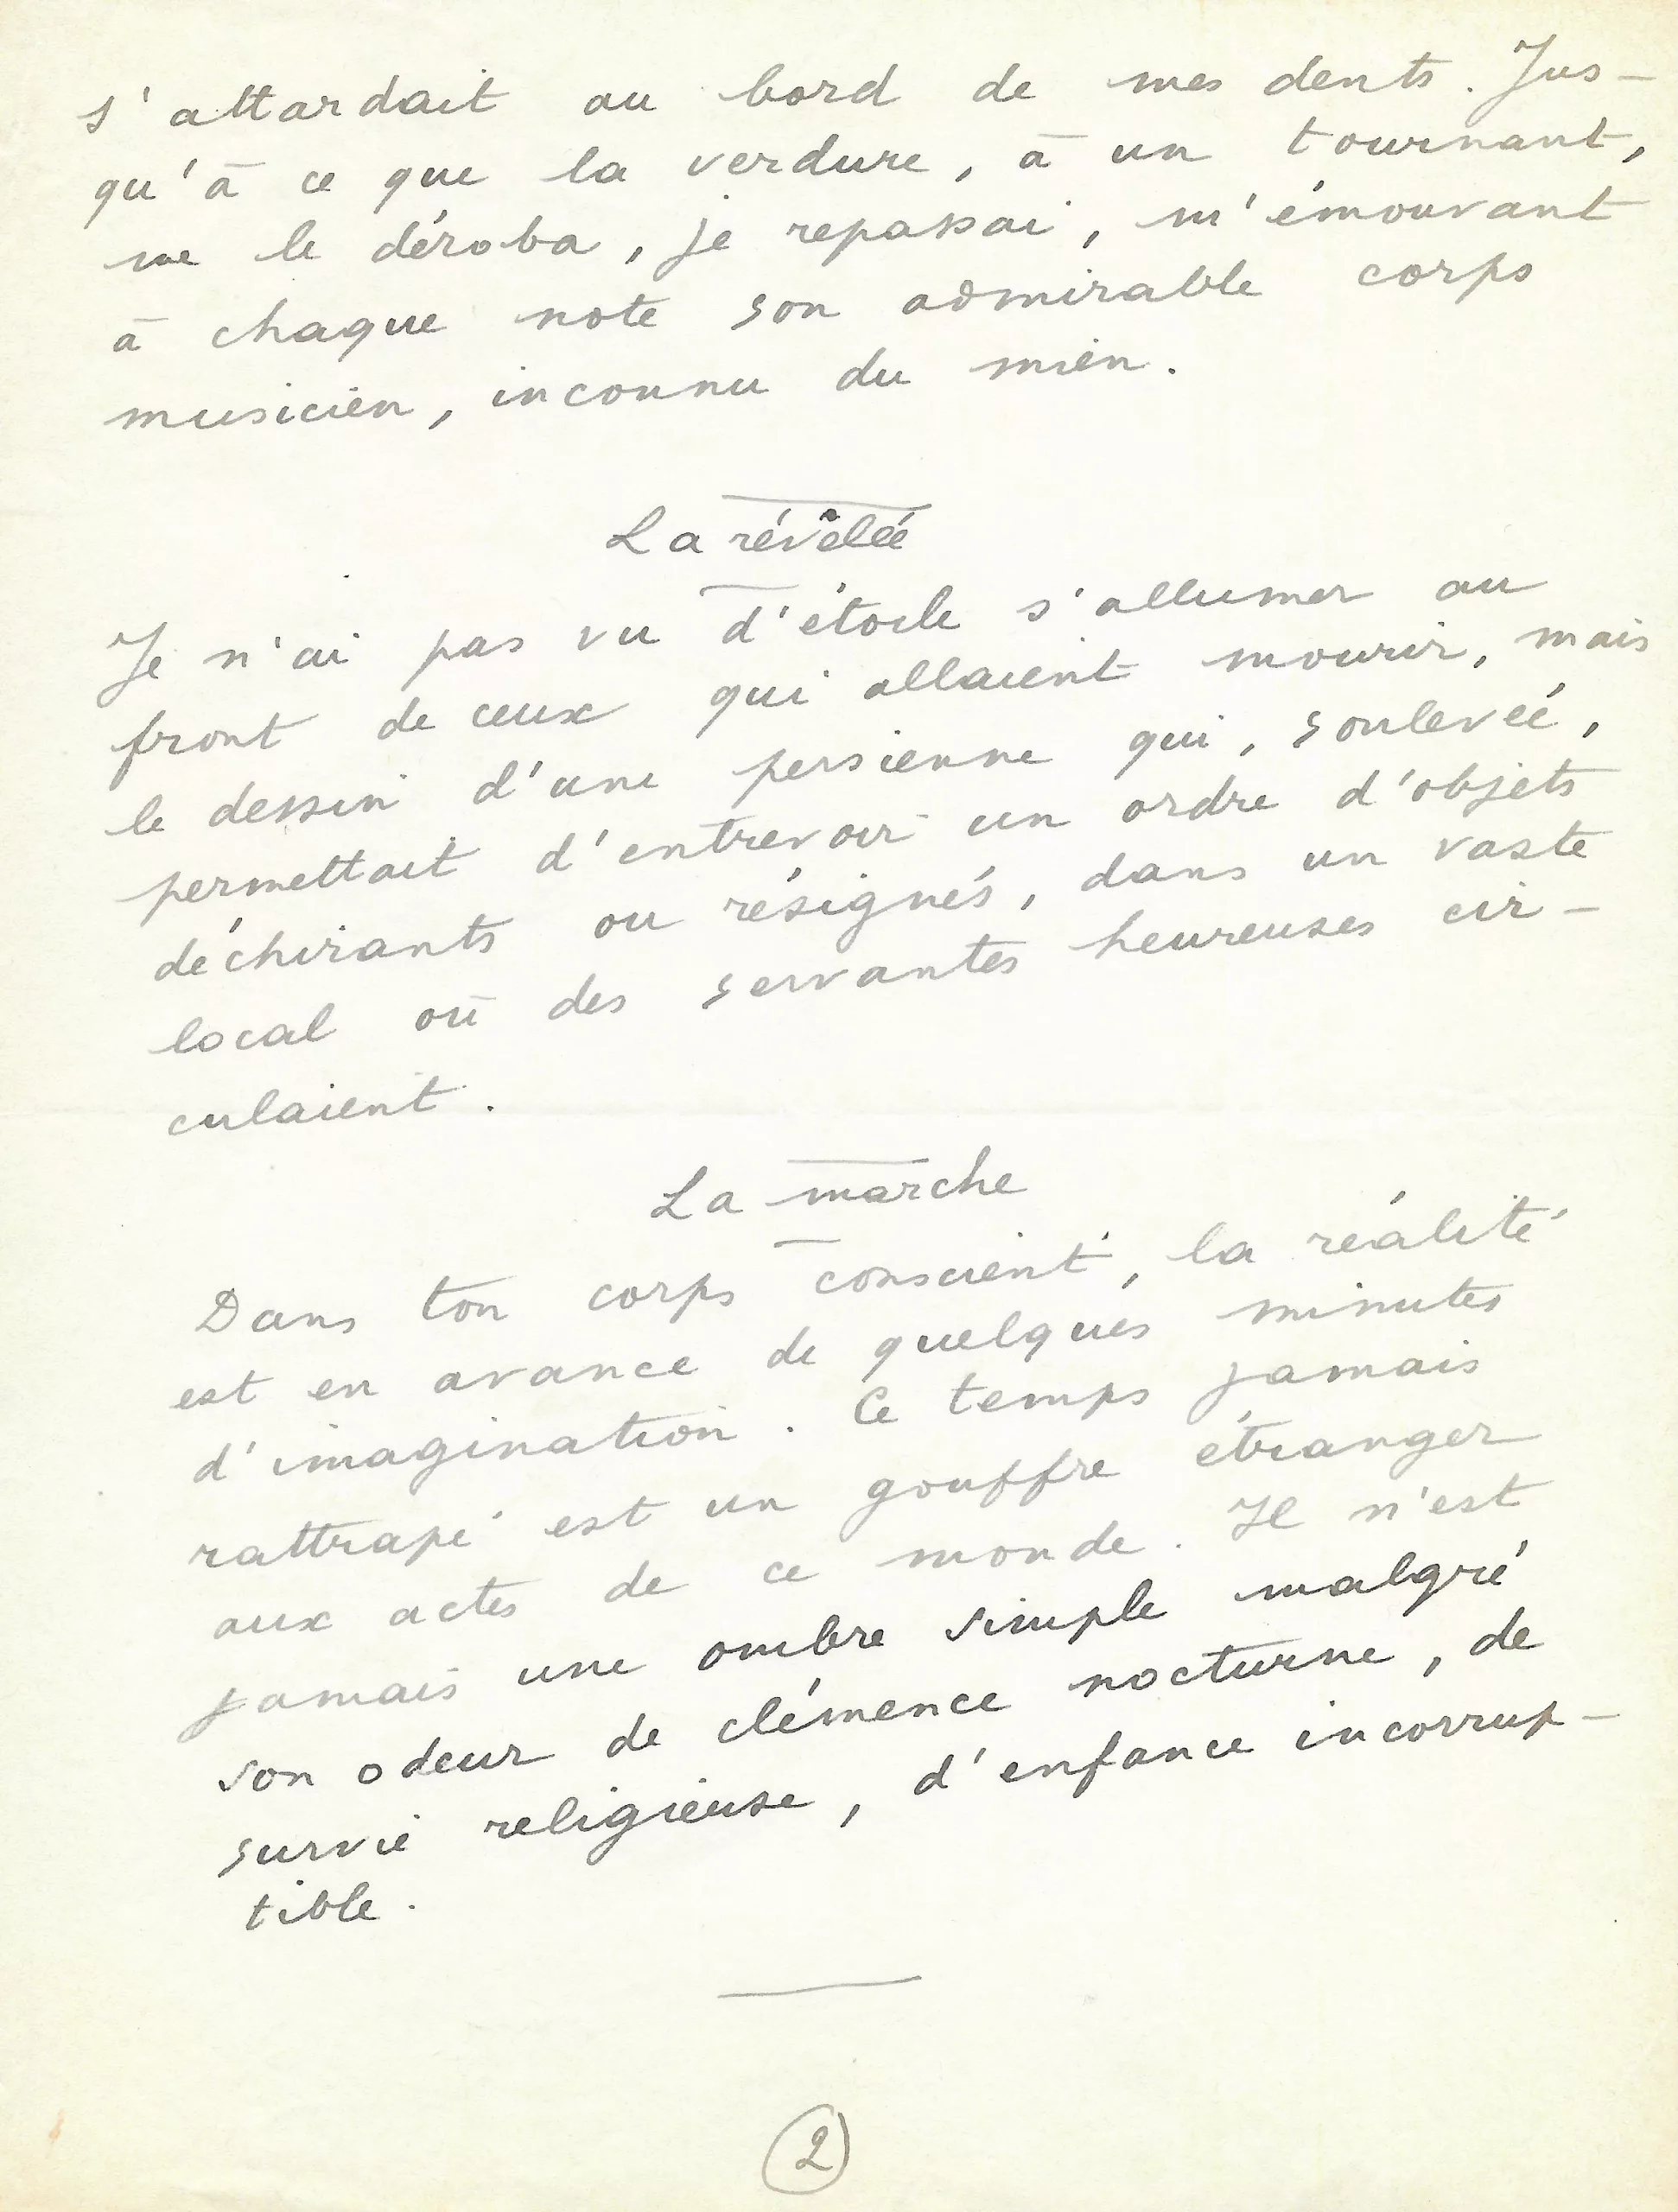 s'attardait au bord de mes dents. Jus-
qu'à ce que la verdure, à un tournant,
me le déroba, je repassai, m'émouvant
à chaque note son admirable corps
musicien, inconnu du mien.
La révélée
Je n'ai pas vu d'étoile s'allumer au
front de ceux qui allaient mourir, mais
le dessin d'une persienne qui, soulevée,
permettait d'entrevoir un ordre d'objets
déchirants ou résignés, dans un vaste
local où des servantes heureuses cir-
culaient.
La marche
Dans ton corps conscient, la réalité
est en avance de quelques minutes
d'imagination. Ce temps jamais
rattrapé est un gouffre étranger
aux actes de ce monde. Il n'est
jamais une ombre simple malgré
son odeur de clémence nocturne, de
survie religieuse, d'enfance incorrup-
tible.
2